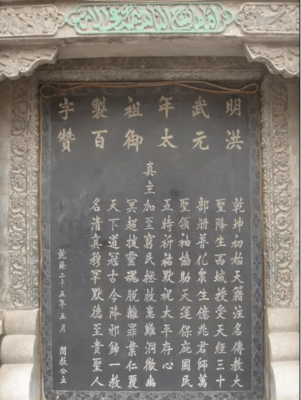 明洪
武元
年太
祖御
製百
字贊
乾坤初始天籍注名傳教大
聖降生西域授受天經三十
部册普化衆生億兆君師萬
聖領袖協助天運保庇國民
五時祈祐默祝太平存心
真主加志窮民拯救患難洞徹幽
冥超拔靈魂脫離罪業仁覆
天下道冠古今降邪歸一教
名清真穆罕默德至貴聖人
乾隆二十五年五月 閤教公立